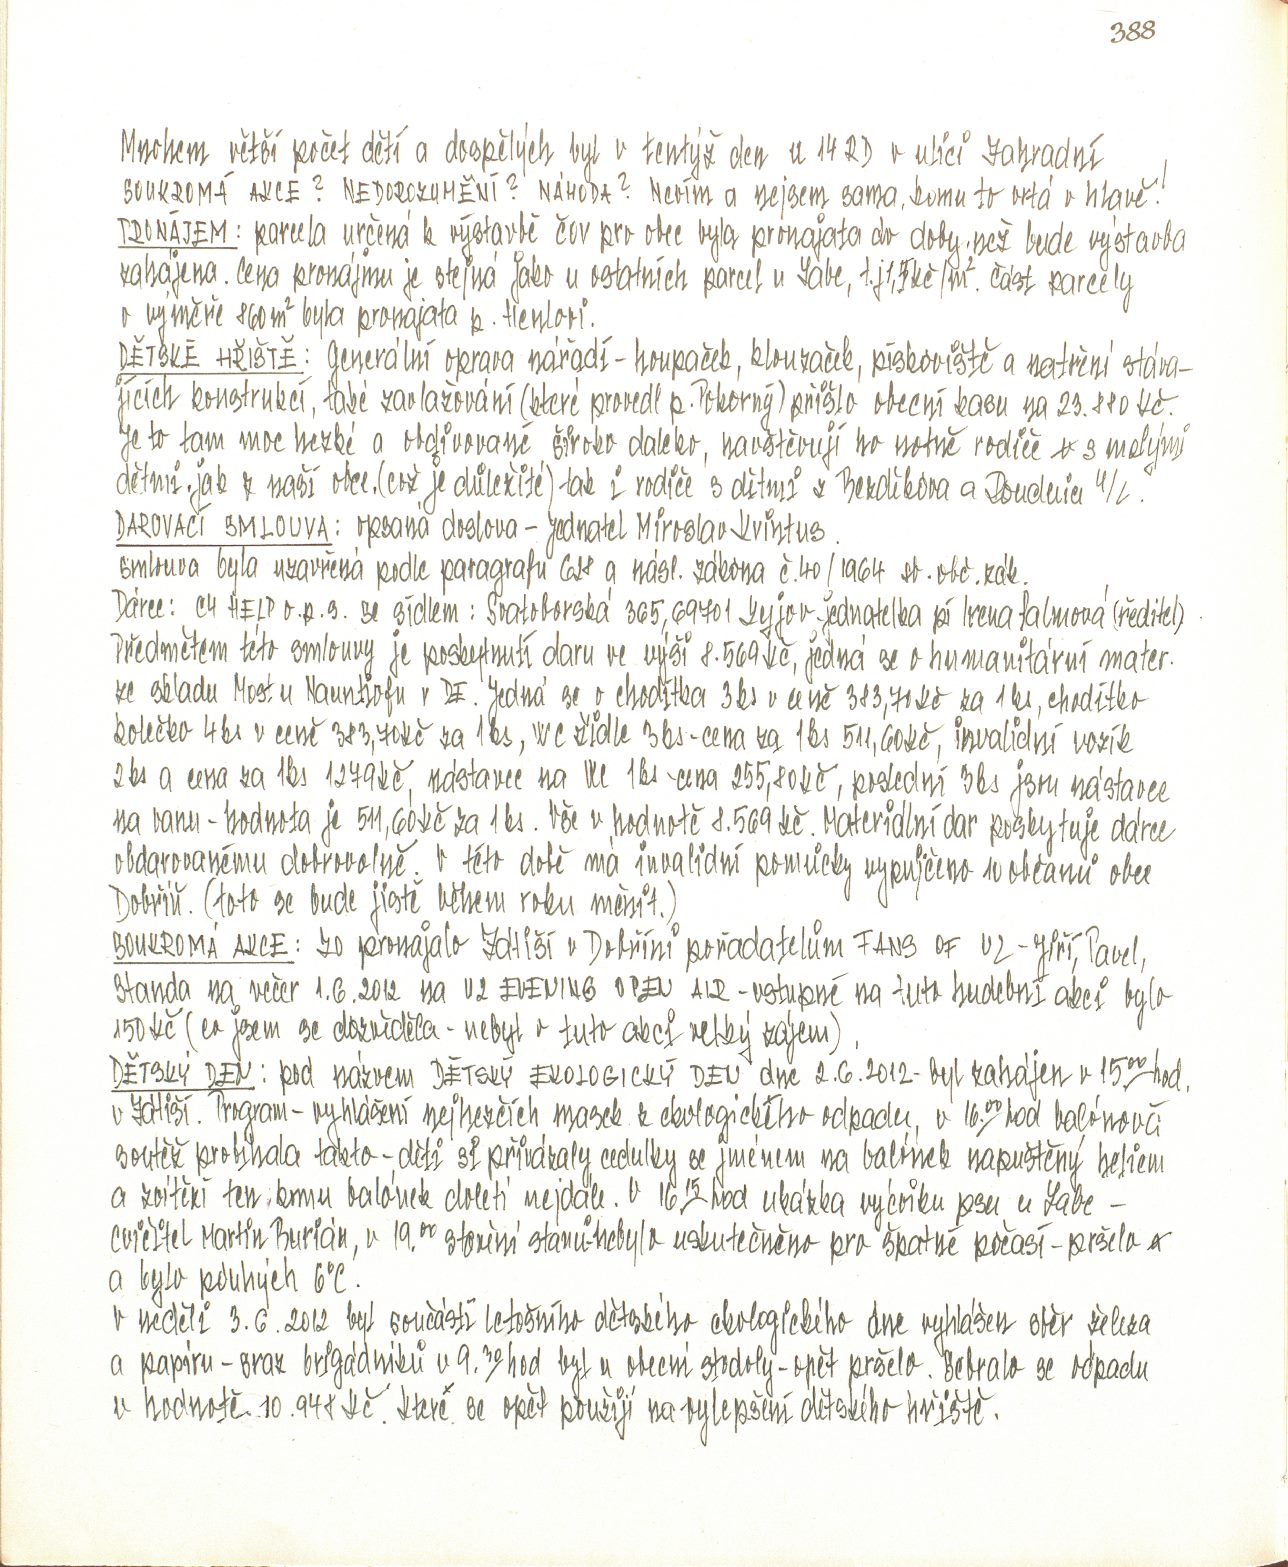 388
Mnohem větší počet dětí a dospělých byl v tentýž den u 14 RD v ulici Zahradní
SOUKROMÁ AKCE? NEDOROZUMĚNÍ? NÁHODA? Nevím a nejsem sama, komu to vrtá v hlavě!
PRONÁJEM: parcela určená k výstavbě čov pro obec byla pronajata do doby, než bude výstavba
zahájena. Cena pronájmu je stejná jako u ostatních parcel u Labe, t.j 1,5 kč/m². část parcely
o výměře 860 m² byla pronajata p.
DĚTSKÉ HŘIŠTĚ: Generální oprava nářadí - houpaček, klouzaček, pískoviště a natření stáva-
jících konstrukcí, také zavlažování (které provedl p. Pokorný) přišlo obecní kasu na 23.880 Kč.
Je to tam moc hezké a obdivované široko daleko, navštěvují ho hotně rodiče s malými
dětmi, jak z naší obce, (což je důležité) tak i rodiče s dětmi z Bezděkova a Roudnice n/L.
DAROVACÍ SMLOUVA: opsaná doslova - jednatel Miroslav Kvintus.
Smlouva byla uzavřená podle paragrafu 628 a násl. zákona č. 40/1964 sb. obč. zák.
Dárce: CH HELP o.p.s. se sídlem: Svatoborská 365, 69701 Kyjov - jednatelka pí Irena Salmová (ředitel)
Předmětem této smlouvy je poskytnutí daru ve výši 8.569 Kč, jedná se o humanitární mater.
ze skladu Most u Naunhofu v DE. Jedná se o chodítka 3 ks v ceně 383,70 kč za 1 ks, chodítko
kolečko 4 ks v ceně 383,70 kč za 1 ks, WC židle 3 ks - cena za 1 ks 511,60 kč, invalidní vozík
2 ks a cena za 1 ks 1279 kč, nástavce na WC 1 ks - cena 255,80 kč, poslední 3 ks jsou nástavce
na vanu - hodnota je 511,60 kč za 1 ks. Vše v hodnotě 8.569 kč. Materiální dar poskytuje dárce
obdarovanému dobrovolně. V této době má invalidní pomůcky vypůjčeno 10 občanů obce
Dobříň. (toto se bude jistě během roku měnit.)
SOUKROMÁ AKCE: ZO pronajalo Zdiší v Dobříni pořadatelům FANS OF U2 - Jiří, Pavel,
Standa na večer 1.6.2012 na U2 EVENING OPEN AIR - vstupné na tuto hudební akci bylo
150 kč (co jsem se dozvěděla - nebyl o tuto akci velký zájem)
DĚTSKÝ DEN: pod názvem DĚTSKÝ EKOLOGICKÝ DEN dne 2.6.2012 - byl zahájen v 15.00 hod.
v Zdiší. Program - vyhlášení nejhezčích masek z ekologického odpadu, v 16.00 hod balónová
soutěž probíhala takto - děti si přivázaly cedulky se jménem na balónek napuštěný heliem
a zvítězí ten, komu balónek doletí nejdále. V 16.15 hod ukázka výcviku psů u Labe -
cvičitel Martin Burián, v 19.00 stavění stanů - nebylo uskutečněno pro špatné počasí - pršelo
a bylo pouhých 6°C.
V neděli 3.6.2012 byl součástí letošního dětského ekologického dne vyhlášen sběr železa
a papíru - sraz brigádníků v 9.30 hod byl u obecní stodoly - opět pršelo. Sebralo se odpadu
v hodnotě 10.948 Kč. které se opět použijí na vylepšení dětského hřiště.